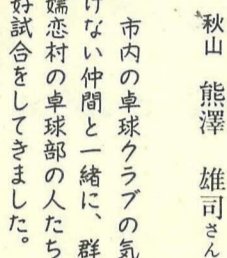 秋山 熊澤 雄司さん
市内の卓球クラブの気
けない仲間と一緒に、群
嬬恋村の卓球部の人たち
好試合をしてきました。